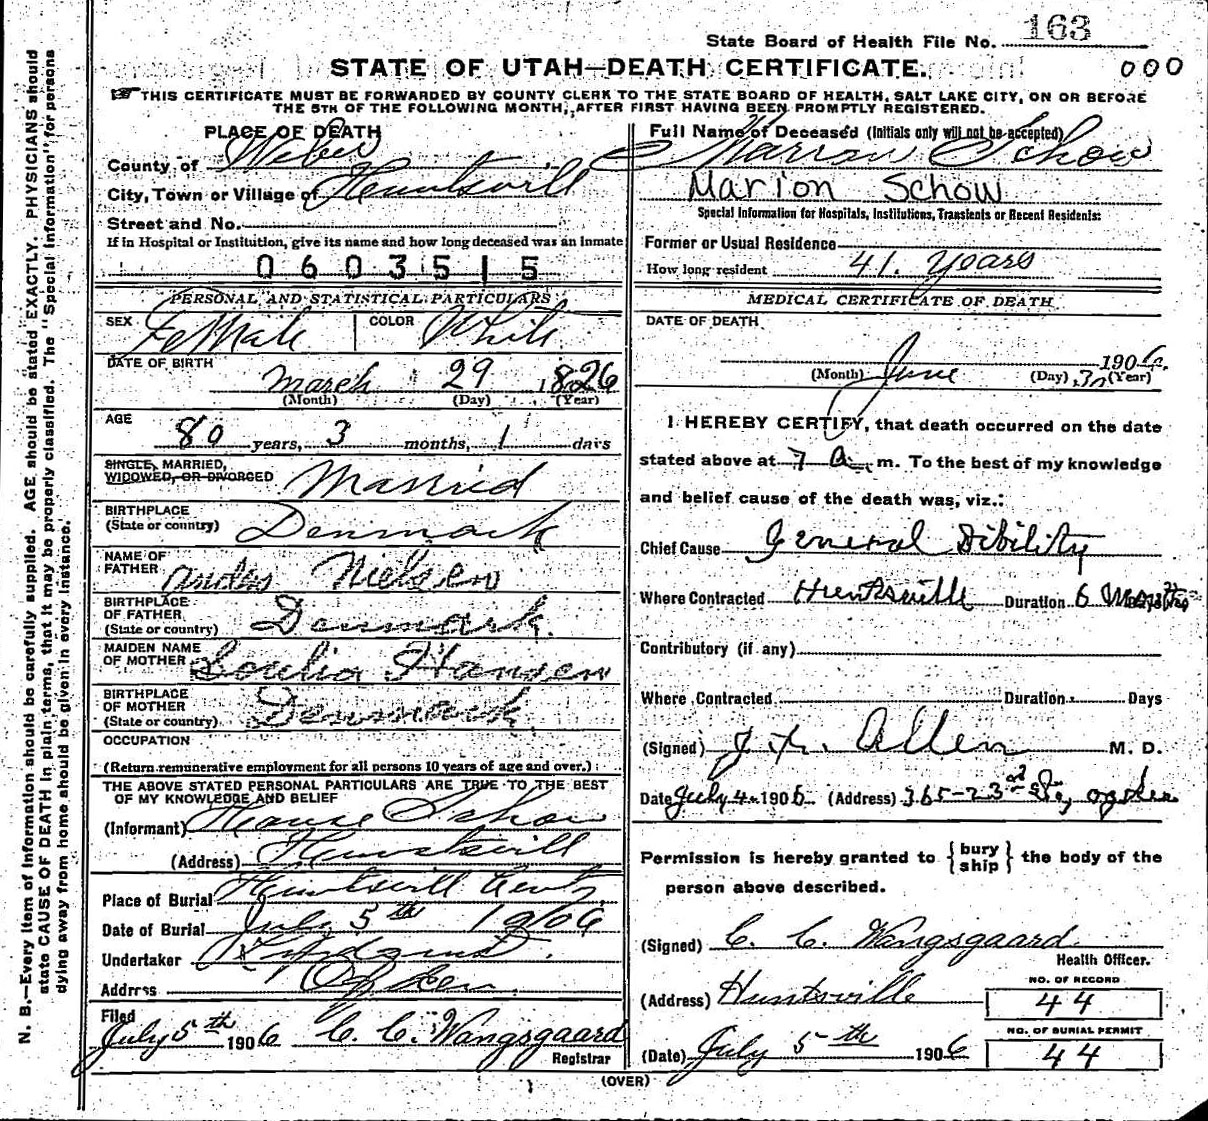 State Board of Health File No. 163
STATE OF UTAH—DEATH CERTIFICATE.
000
THIS CERTIFICATE MUST BE FORWARDED BY COUNTY CLERK TO THE STATE BOARD OF HEALTH, SALT LAKE CITY, ON OR BEFORE
THE 5TH OF THE FOLLOWING MONTH, AFTER FIRST HAVING BEEN PROMPTLY REGISTERED.
N. B.—Every item of information should be carefully supplied. AGE should be stated EXACTLY. PHYSICIANS should
state CAUSE OF DEATH in plain terms, that it may be properly classified. The "Special Information" for persons
dying away from home should be given in every instance.
PLACE OF DEATH
County of Weber
City, Town or Village of Huntsvill
Street and No.
If in Hospital or Institution, give its name and how long deceased was an inmate
0603515
PERSONAL AND STATISTICAL PARTICULARS
SEX FeMale COLOR White
DATE OF BIRTH
March 29 1826
(Month) (Day) (Year)
AGE
80 years, 3 months, 1 days
SINGLE, MARRIED,
WIDOWED, OR DIVORCED Married
BIRTHPLACE
(State or country) Denmark
NAME OF
FATHER Andes Nielsen
BIRTHPLACE
OF FATHER
(State or country) Denmark.
MAIDEN NAME
OF MOTHER Hansen
BIRTHPLACE
OF MOTHER
(State or country) Denmark
OCCUPATION
(Return remunerative employment for all persons 10 years of age and over.)
THE ABOVE STATED PERSONAL PARTICULARS ARE TRUE TO THE BEST
OF MY KNOWLEDGE AND BELIEF
(Informant) Schow
(Address) Huntsvill
Place of Burial Huntsvill
Date of Burial July 5th 1906
Undertaker
Address Ogden.
Filed
July 5th 1906 C. C. Wangsgaard
Registrar
Full Name of Deceased (Initials only will not be accepted)
Marion Schow
Marion Schow
Special Information for Hospitals, Institutions, Transients or Recent Residents:
Former or Usual Residence
How long resident 41. Years
MEDICAL CERTIFICATE OF DEATH
DATE OF DEATH
June 30 1906.
(Month) (Day) (Year)
I HEREBY CERTIFY, that death occurred on the date
stated above at 7 A. m. To the best of my knowledge
and belief cause of the death was, viz.:
Chief Cause General Dibility
Where Contracted Huntsville Duration 6 Months
Contributory (if any)
Where Contracted Duration Days
(Signed) Allen M. D.
Date July 4 1906. (Address) 365-23rd St., Ogden
Permission is hereby granted to {bury ship} the body of the
person above described.
(Signed) C. C. Wangsgaard.
Health Officer.
(Address) Huntsville
NO. OF RECORD
44
NO. OF BURIAL PERMIT
44
(Date) July 5th 1906
(OVER)